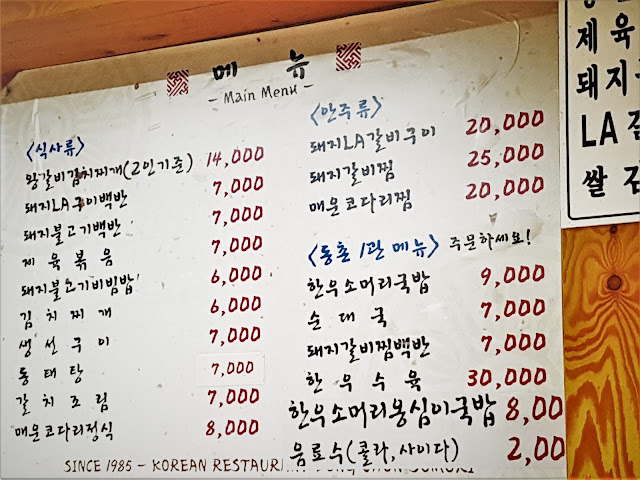 메 뉴
- Main Menu -
<식사류>
왕갈비김치찌개(2인기준) 14,000
돼지LA구이백반 7,000
돼지불고기백반 7,000
제 육 볶 음 7,000
돼지불고기비빔밥 6,000
김 치 찌 개 6,000
생 선 구 이 7,000
동 태 탕 7,000
갈 치 조 림 7,000
매운코다리정식 8,000
<안주류>
돼지LA갈비구이 20,000
돼지갈비찜 25,000
매운코다리찜 20,000
<동촌 1관 메뉴> 주문하세요!
한우소머리국밥 9,000
순 대 국 7,000
돼지갈비찜백반 7,000
한 우 수 육 30,000
한우소머리옹심이국밥 8,00
음료수(콜라,사이다) 2,00
SINCE 1985 - KOREAN
제육
돼지
LA
쌀